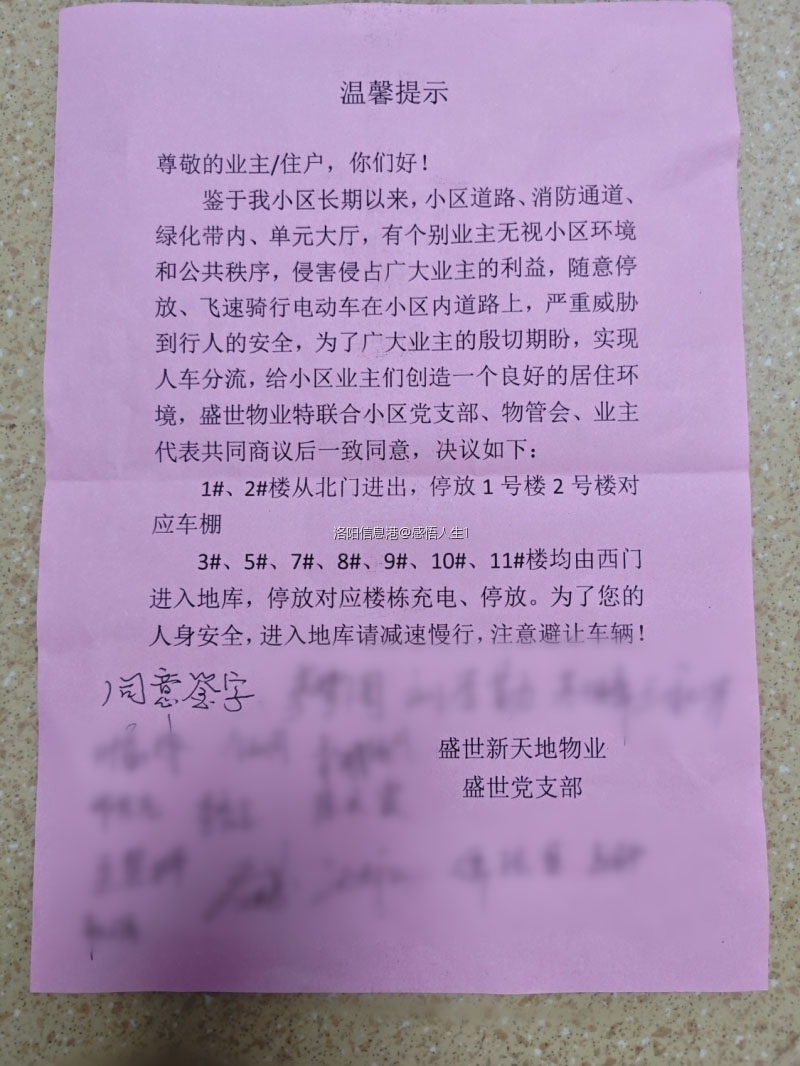 温馨提示
尊敬的业主/住户，你们好！
鉴于我小区长期以来，小区道路、消防通道、
绿化带内、单元大厅，有个别业主无视小区环境
和公共秩序，侵害侵占广大业主的利益，随意停
放、飞速骑行电动车在小区内道路上，严重威胁
到行人的安全，为了广大业主的殷切期盼，实现
人车分流，给小区业主们创造一个良好的居住环
境，盛世物业特联合小区党支部、物管会、业主
代表共同商议后一致同意，决议如下：
1#、2#楼从北门进出，停放1号楼2号楼对
应车棚
洛阳信息港@感悟人生1
3#、5#、7#、8#、9#、10#、11#楼均由西门
进入地库，停放对应楼栋充电、停放。为了您的
人身安全，进入地库请减速慢行，注意避让车辆！
同意签字
盛世新天地物业
盛世党支部